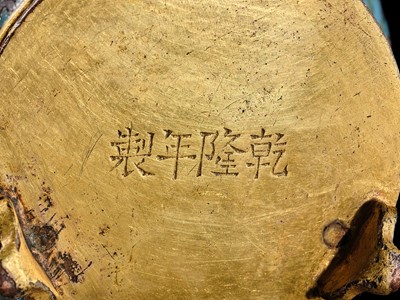 乾隆年製